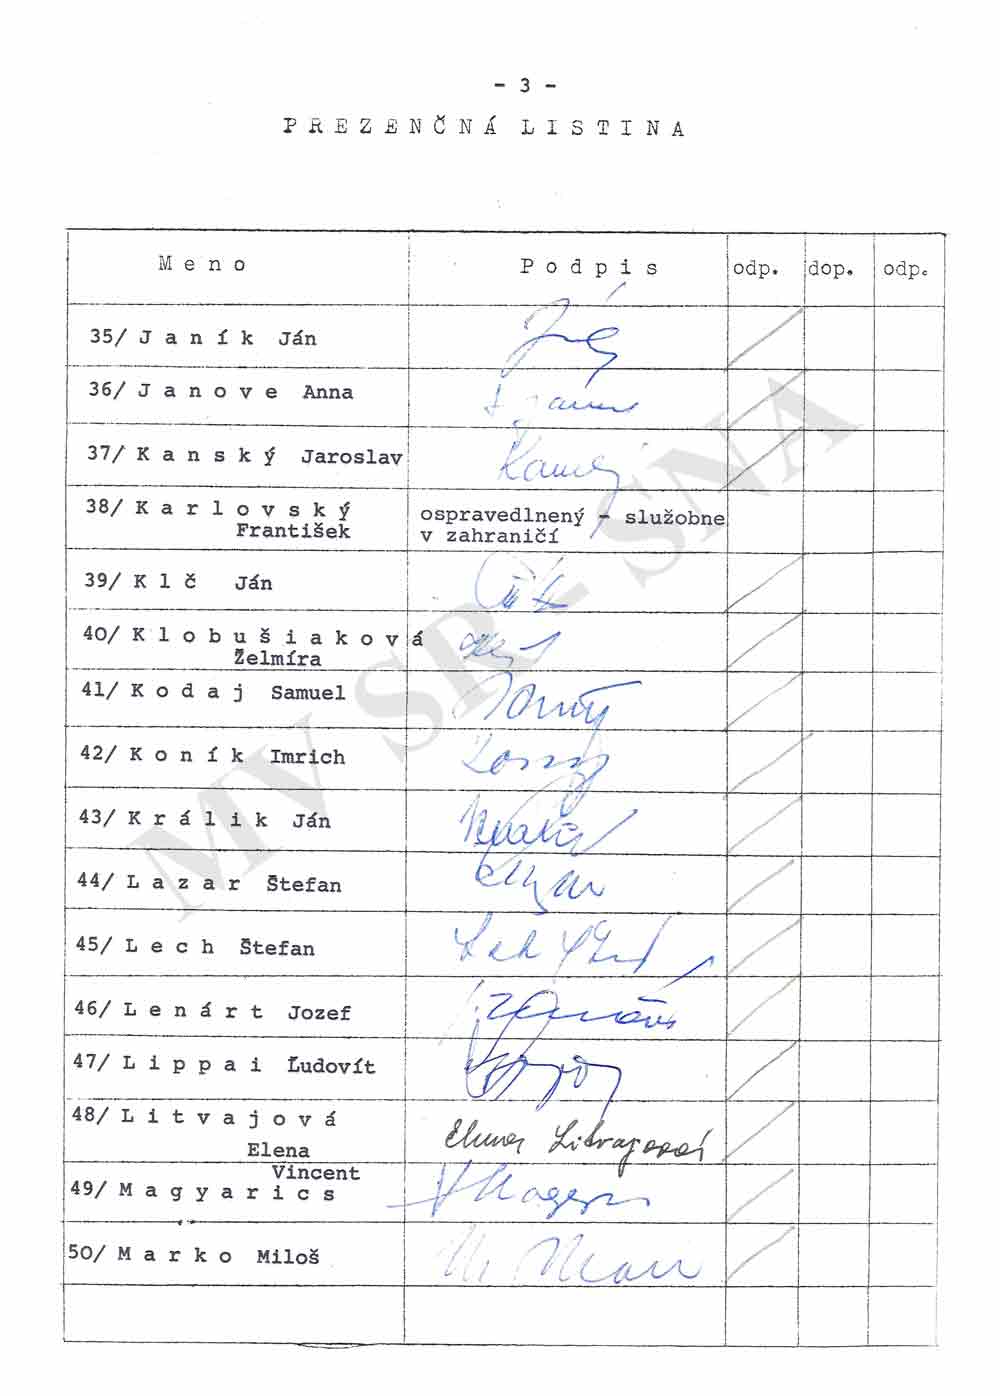 - 3 -
PREZENČNÁ LISTINA
Meno Podpis odp. dop. odp.
35/ Janík Ján
36/ Janove Anna
37/ Kanský Jaroslav
38/ Karlovský ospravedlnený - služobne
František v zahraničí
39/ Klč Ján
40/ Klobušiaková
Želmíra
41/ Kodaj Samuel
42/ Koník Imrich
43/ Králik Ján
44/ Lazar Štefan
45/ Lech Štefan
46/ Lenárt Jozef
47/ Lippai Ľudovít
48/ Litvajová
Elena Elena Litvajová
Vincent
49/ Magyarics
50/ Marko Miloš
MV SR - SNA